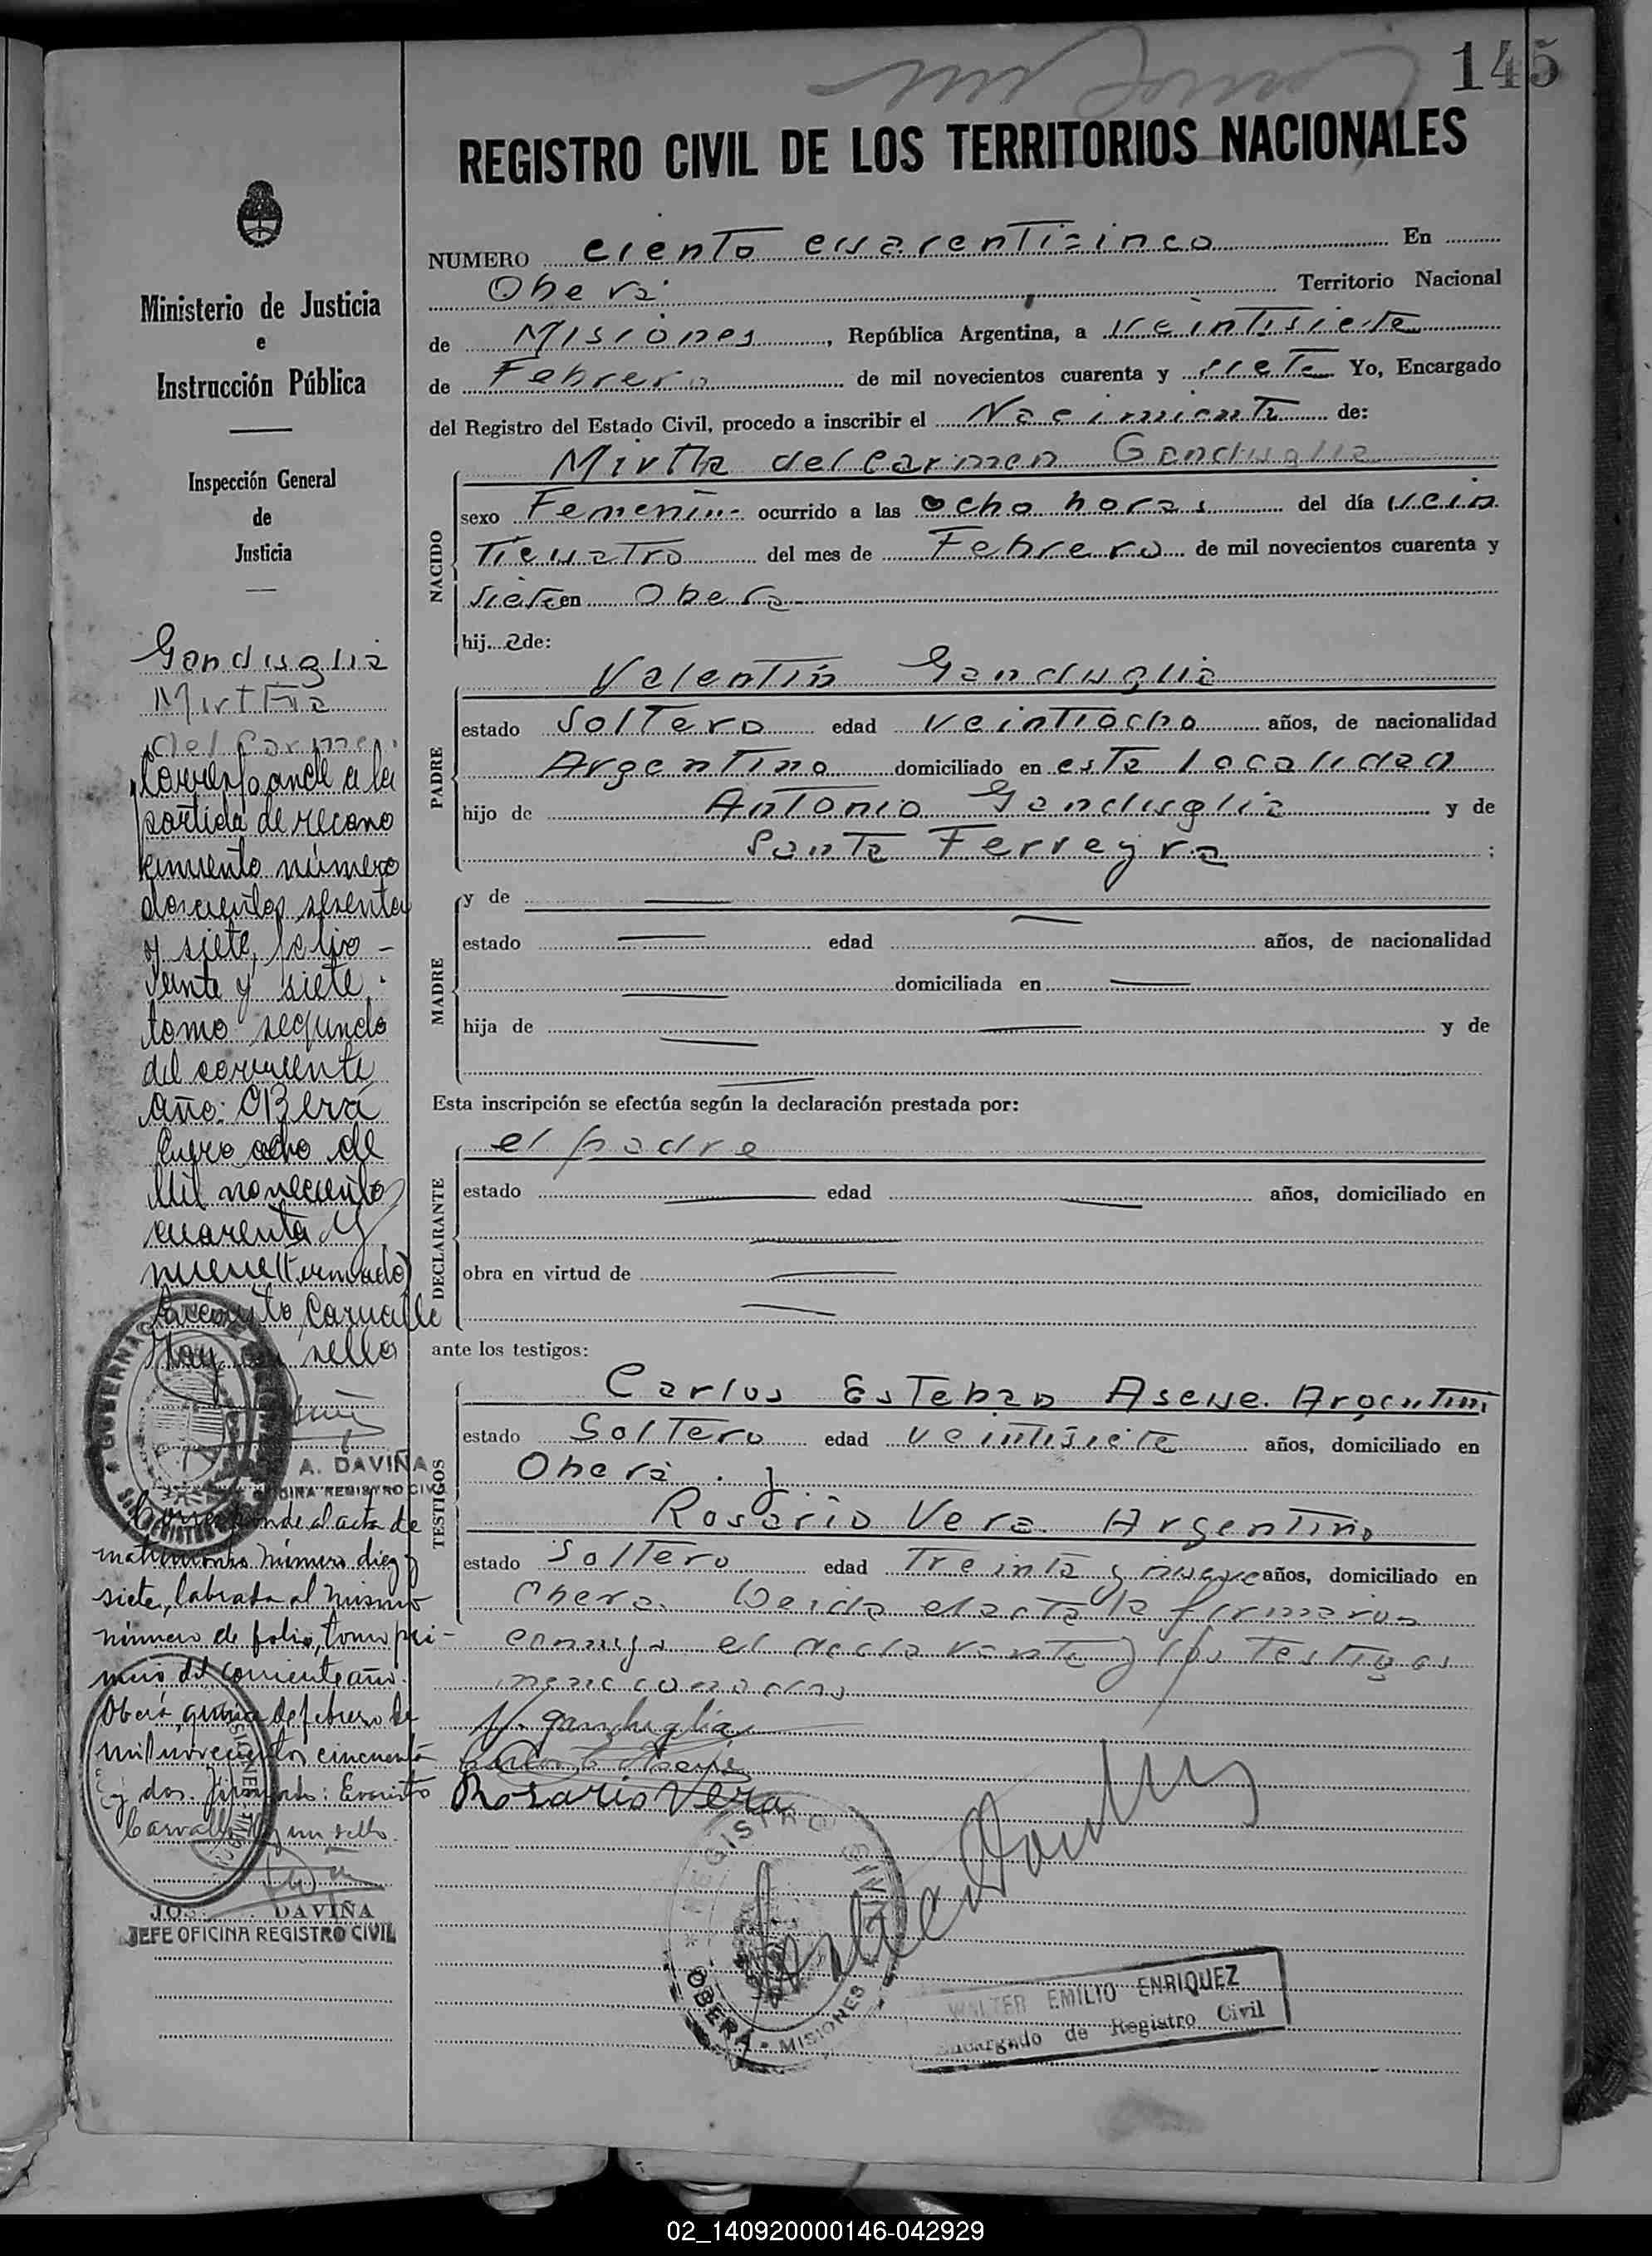 145
REGISTRO CIVIL DE LOS TERRITORIOS NACIONALES
Ministerio de Justicia
e
Instrucción Pública
Inspección General
de
Justicia
Ganduglia
Mirtha
del Carmen
Corresponde a la
partida de recono
cimiento número
doscientos sesenta
y siete, folio
sente y siete.
tomo segundo
del corriente
año: OBerá
Enero ocho de
Mil novecientos
cuarenta y
nueve (firmado)
Evaristo Carvallo
Hay un sello
A. DAVIÑA
OFICINA REGISTRO CIVIL
Corresponde al acta de
matrimonio número diez y
siete, labrada al mismo
número de folio, tomo pri-
mero del corriente año.
Oberá, quince de febrero de
mil novecientos cincuenta
y dos. Firmado: Evaristo
Carvallo Hay un sello.
DAVIÑA
JEFE OFICINA REGISTRO CIVIL
NUMERO ciento cuarenticinco En
Oberá Territorio Nacional
de Misiones, República Argentina, a veintisiete
de Febrero de mil novecientos cuarenta y siete Yo, Encargado
del Registro del Estado Civil, procedo a inscribir el Nacimiento de:
NACIDO
Mirtha del Carmen Ganduglia
sexo Femenino ocurrido a las ocho horas del día vein
ticuatro del mes de Febrero de mil novecientos cuarenta y
siete en Oberá
hij a de:
PADRE
Valentín Ganduglia
estado Soltero edad veintiocho años, de nacionalidad
Argentino domiciliado en esta localidad
hijo de Antonio Ganduglia y de
Santa Ferreyra ;
MADRE
y de
estado edad años, de nacionalidad
domiciliada en
hija de y de
Esta inscripción se efectúa según la declaración prestada por:
DECLARANTE
el padre
estado edad años, domiciliado en
obra en virtud de
ante los testigos:
TESTIGOS
Carlos Esteban Aseve. Argentino
estado Soltero edad veintisiete años, domiciliado en
Oberá. y
Rosario Vera Argentino
estado Soltero edad Treinta y nueve años, domiciliado en
Oberá. Leida el acta la firmaron
conmigo el declarante y los Testigos
mencionados
V. ganduglia
Rosario Vera
REGISTRO CIVIL
OBERÁ - MISIONES
WALTER EMILIO ENRIQUEZ
Encargado de Registro Civil
02_140920000146-042929